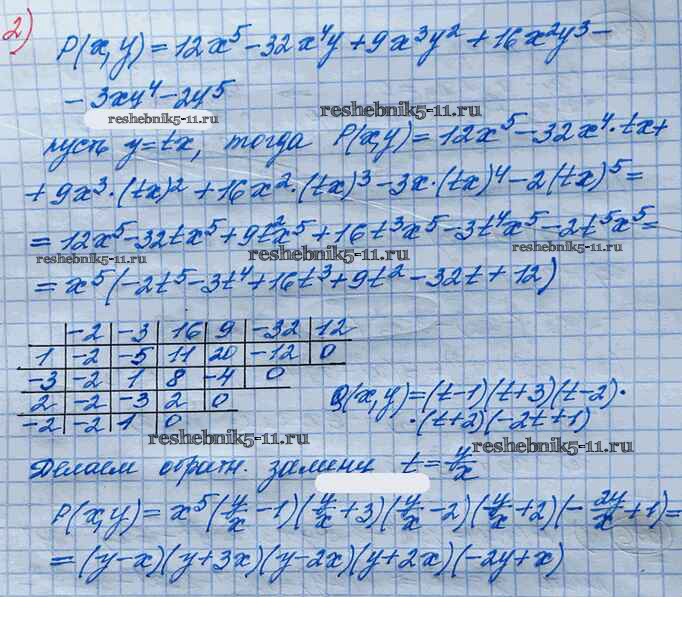 2)
P(x,y) = 12x⁵ - 32x⁴y + 9x³y² + 16x²y³ -
- 3xy⁴ - 2y⁵
reshebnik5-11.ru
reshebnik5-11.ru
пусть y=tx, тогда P(x,y) = 12x⁵ - 32x⁴·tx+
+ 9x³·(tx)² + 16x²·(tx)³ - 3x·(tx)⁴ - 2(tx)⁵ =
= 12x⁵ - 32tx⁵ + 9t²x⁵ + 16t³x⁵ - 3t⁴x⁵ - 2t⁵x⁵ =
reshebnik5-11.ru
reshebnik5-11.ru
reshebnik5-11.ru
= x⁵(-2t⁵ - 3t⁴ + 16t³ + 9t² - 32t + 12)
-2 -3 16 9 -32 12
1 -2 -5 11 20 -12 0
-3 -2 1 8 -4 0
2 -2 -3 2 0
-2 -2 1 0
Q(x,y) = (t-1)(t+3)(t-2)·
·(t+2)(-2t+1)
reshebnik5-11.ru
reshebnik5-11.ru
Делаем обратн. замену t = y/x
P(x,y) = x⁵(y/x - 1)(y/x + 3)(y/x - 2)(y/x + 2)(- 2y/x + 1) =
= (y-x)(y+3x)(y-2x)(y+2x)(-2y+x)